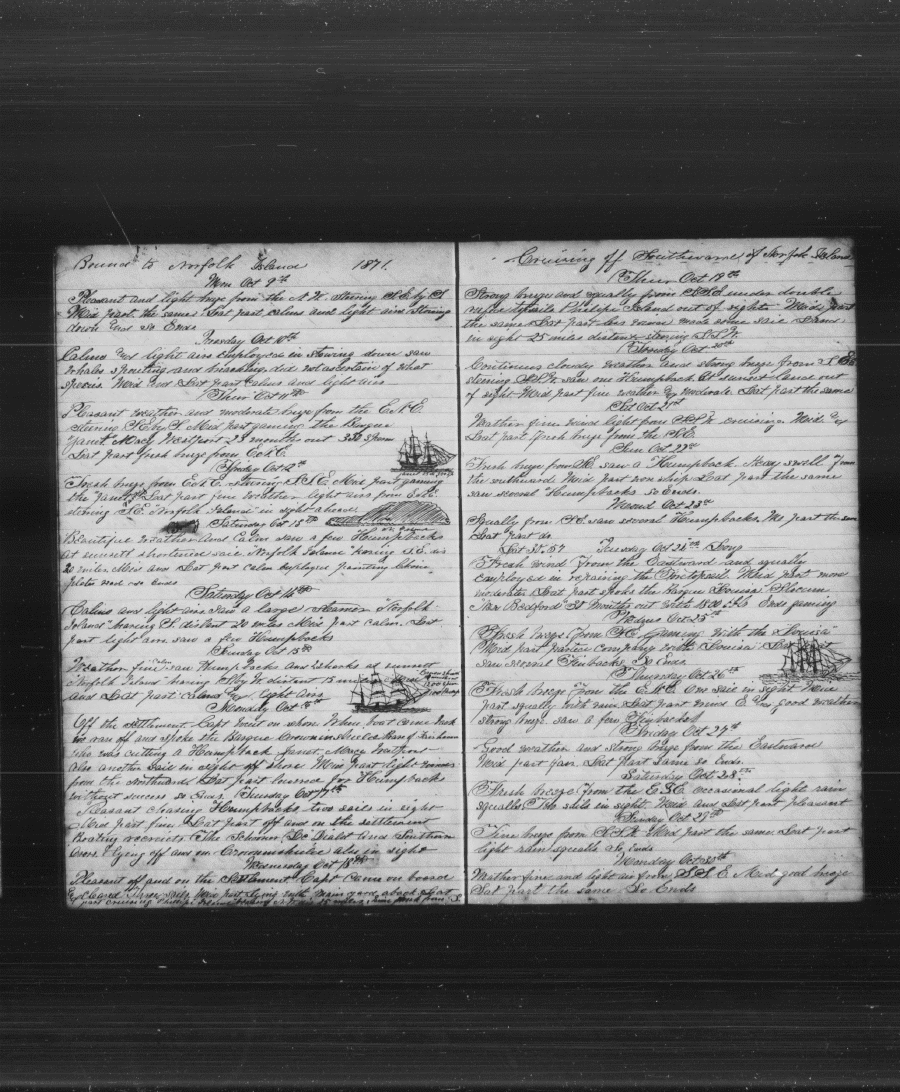 Bound to Norfolk Island 1871.
Mon Oct 9th
Pleasant and light breeze from the N.W. Stering S.E. by S
Mid part the same Last part calms and light airs Stowing
down and So Ends
Tuesday Oct 10th
Calms and light airs employed in stowing down saw
whales spouting and breaching did not ascertain of what
species Mid and Last part Calms and light airs
Thur Oct 11th
Pleasant weather and modorate breeze from the E.N.E.
stering S by S Mid part gaming the Barque
Janet Macy Westport 23 months out 350 Sperm
Last part fresh breeze from E.N.E.
Fryday Oct 12th
Fresh breeze from E.N.E. Stering S.S.E. Mid part gaming
the Janet Last part fine weather light airs from E.N.E.
stering S.E. Norfolk Island in sight ahead
Saturday Oct 13th
Beautiful weather and Calm saw a few Humpbacks
at sunset shortened sail Norfolk Island bearing S.E. dis
20 miles Mid and Last part calm Employed painting
and so ends
Saturday Oct 14th
Calms and light airs saw a large Steamer Norfolk
Island bearing S. distant 20 miles Mid part calm. Last
part light airs. saw a few Humpbacks
Sunday Oct 15th
Weather fine saw Hump backs and at sunset
Norfolk Island bearing by W distant 15 miles
and Last part Calms and light airs
Monday Oct 16th
Off the settlement Capt went on shore When boat came back
we ran off and spoke the Barque Crowninshield of Fairhaven
who was cutting a Humpback Janet Macy Westport
Also another sail in sight off shore Mid part light winds
from the northward Last part lowered for Humpback
without success so Ends. Thursday Oct 17th
Pleasant chasing Humpbacks two sails in sight
Mid part fine Last part off and on the settlement
Boating recruits the Schooner and Southern
Cross Flying off and on Crowninshield also in sight
Wednesday Oct 18th
Pleasant off and on the Settlement Capt Came on board
Mid part lying with main yard aback Last
part
Cruising off Southward of Norfolk Island
Thur Oct 19th
Strong breeze and squally from S.S.E under double
reefed topsails Philips Island out of sight. Mid part
the same Last part less wind made some sail Island
in sight 25 miles distant stering S.S.W.
Thursday Oct 20th
Continues cloudy weather and strong breeze from S.E.
stering S.S.W. saw one Humpback At sunset land out
of sight Mid part fine weather & moderate. Last part the same
Sat Oct 21st
Weather fine wind light from S.S.W cruising Mid &
Last part fresh breeze from the S.E.
Sun Oct 22nd
Fresh breeze from S.E. saw a Humpback. Heavy swell from
the southward Mid part wore ship Last part the same
saw several Humpbacks. so Ends.
Mond Oct 23rd
Squally from S.E. saw several Humpbacks. Mid part the same
Last part do.
Tuesday Oct 24th
Fresh wind from the Eastward and squally
employed in repairing the Foretopsail. Mid part more
moderate Last part spoke the Barque Louisa Slocum
New Bedford months out with 1800 Ends gaming
Wednes Oct 25th
Fresh breeze from S.E. Gaming with the Louisa
Mid part parting company with Louisa Last part
saw several Finbacks So Ends.
Thursday Oct 26th
Fresh breeze from the E.N.E. One sail in sight Mid
part squally with rain Last part wind E and good weather
strong breeze. saw a few Finbacks
Fryday Oct 27th
Good weather and strong breeze from the Eastward
Mid part rain Last part same so Ends.
Saturday Oct 28th
Fresh breeze from the E.S.E. Occasional light rain
squalls two sails in sight. Mid and Last part pleasant
Sunday Oct 29th
Fine breeze from S.S.E. Mid part the same Last part
light rain squalls So Ends
Monday Oct 30th
Weather fine and light air from S.S.E. Mid good breeze
Last part the same So Ends